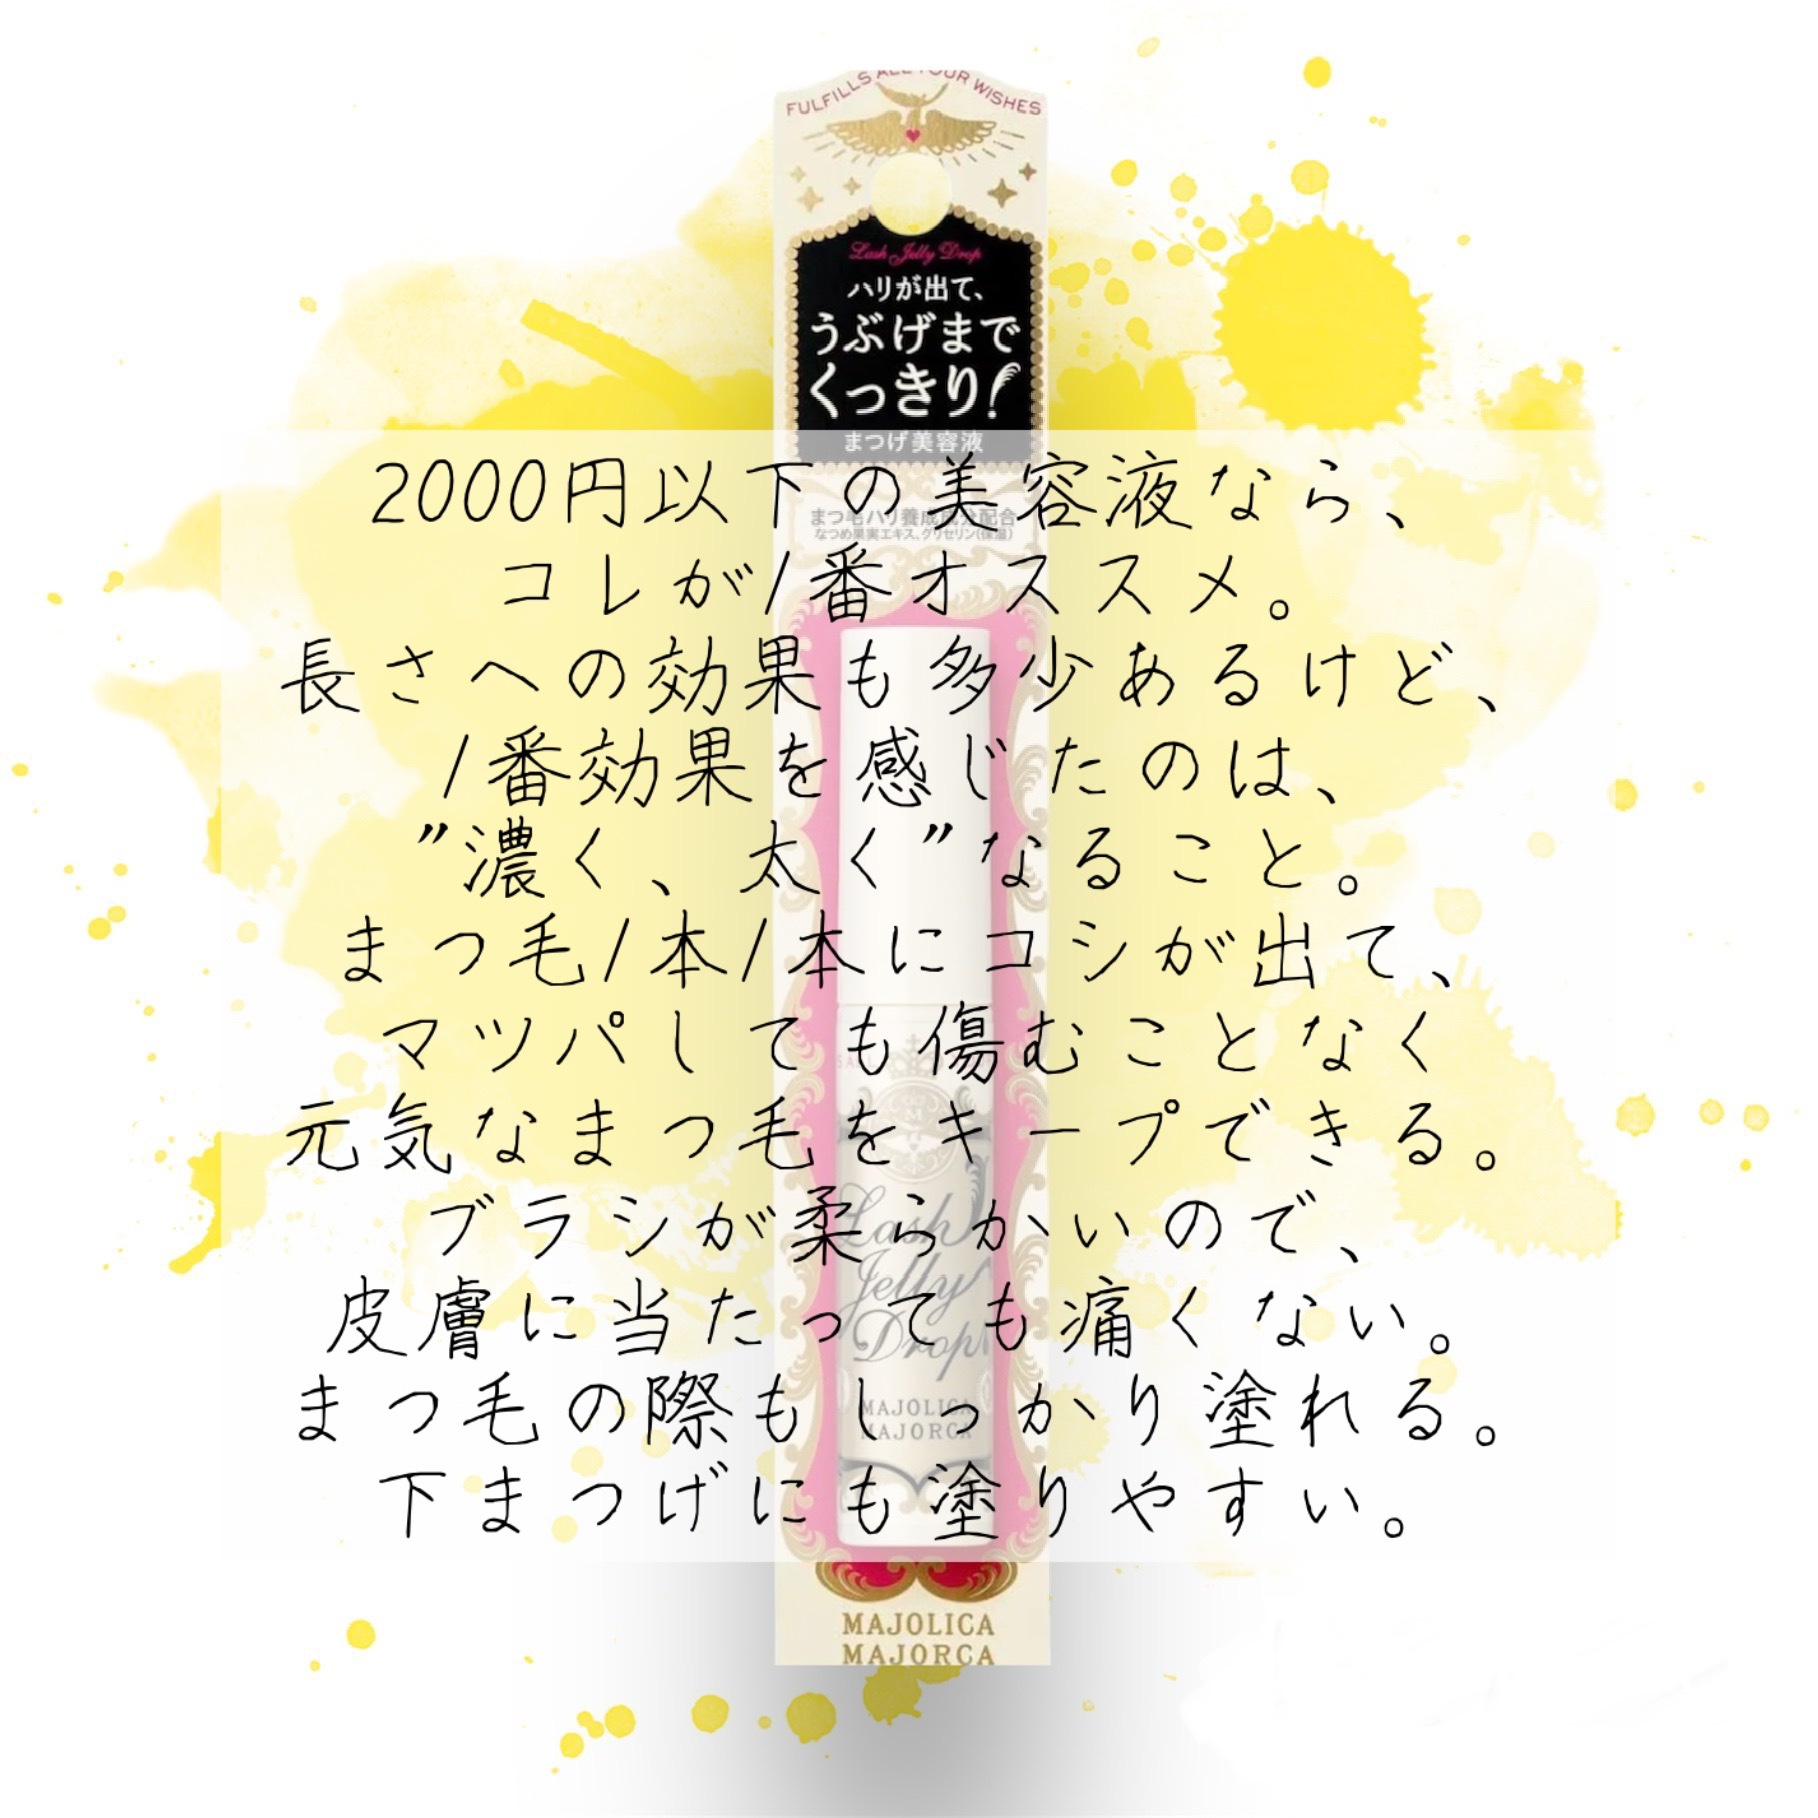 FULFILLS ALL YOUR WISHES
Lash Jelly Drop
ハリが出て、
うぶげまで
くっきり!
まつげ美容液
2000円以下の美容液なら、
まつ毛ハリ養成成分配合
なつめ果実エキス、グリセリン(保湿)
コレが1番オススメ。
長さへの効果も多少あるけど、
1番効果を感じたのは、
"濃く、太く"なること。
まつ毛1本1本にコシが出て、
マツパしても傷むことなく
元気なまつ毛をキープできる。
ブラシが柔らかいので、
Lash
Jelly
Drop
皮膚に当たっても痛くない。
まつ毛の際もしっかり塗れる。
MAJOLICA
MAJORCA
下まつげにも塗りやすい。
MAJOLICA
MAJORCA